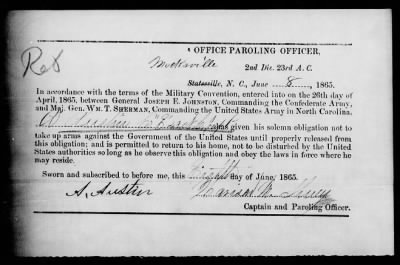 OFFICE PAROLING OFFICER,
Mocksville
2nd Div. 23rd A. C.
Statesville, N. C., June 8, 1865.
In accordance with the terms of the Military Convention, entered into on the 26th day of
April, 1865, between General JOSEPH E. JOHNSTON, Commanding the Confederate Army,
and Maj. Gen. WM. T. SHERMAN, Commanding the United States Army in North Carolina.
Austin has given his solemn obligation not to
take up arms against the Government of the United States until properly released from
this obligation; and is permitted to return to his home, not to be disturbed by the United
States authorities so long as he observe this obligation and obey the laws in force where he
may reside.
Sworn and subscribed to before me, this day of June, 1865.
A. Austin
Captain and Paroling Officer.